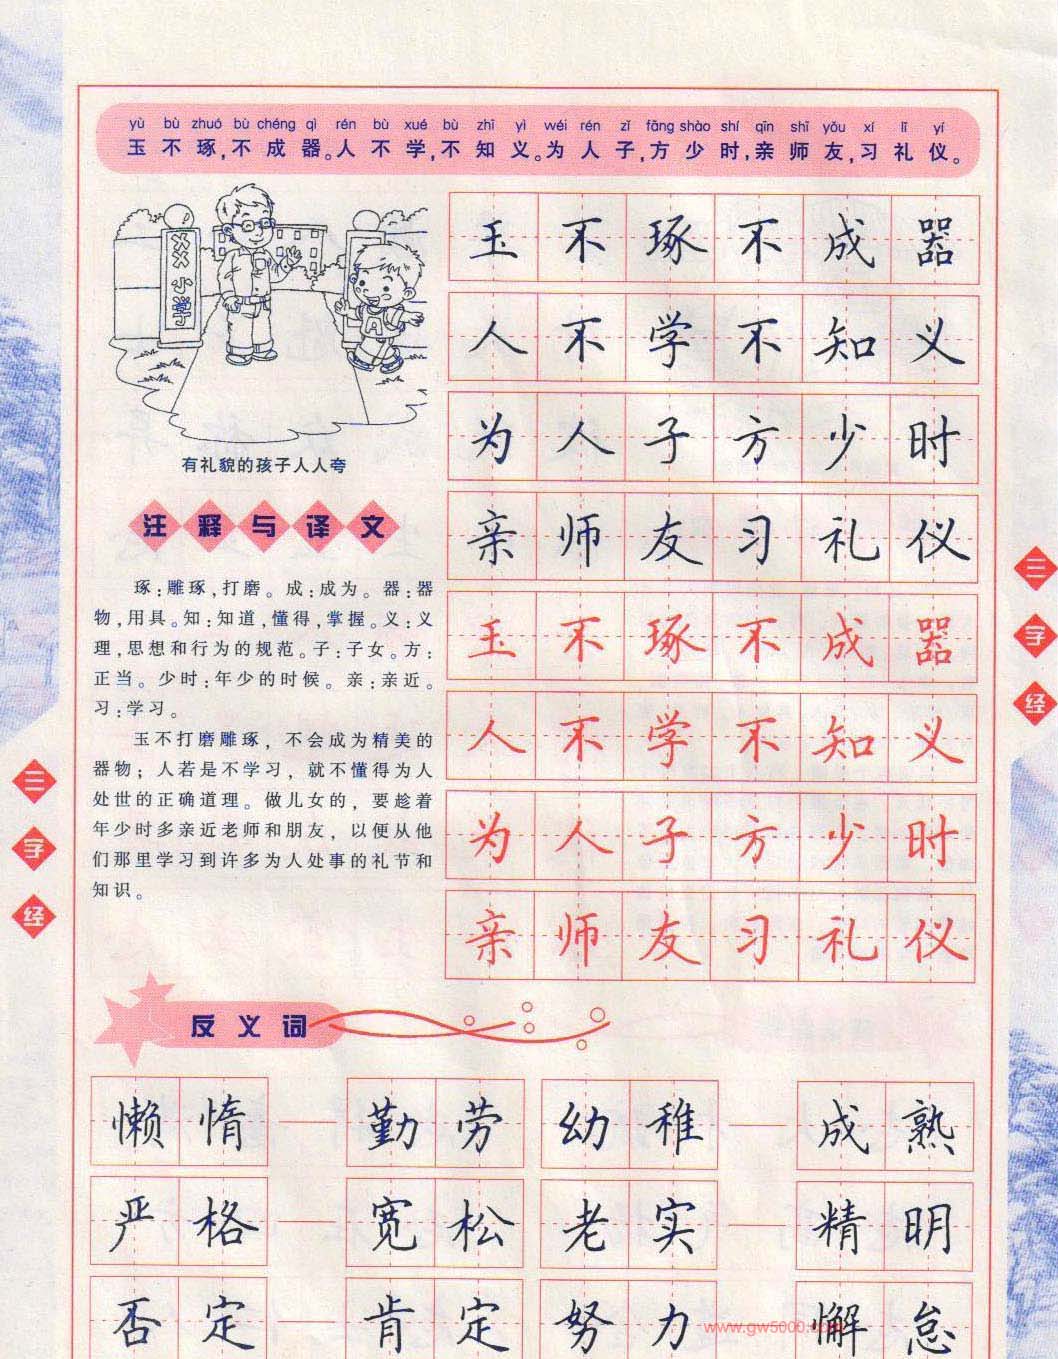 yù bù zhuó bù chéng qì rén bù xué bù zhī yì wéi rén zǐ fāng shào shí qīn shī yǒu xí lǐ yí
玉不琢,不成器。人不学,不知义。为人子,方少时,亲师友,习礼仪。
小学
有礼貌的孩子人人夸
注释与译文
琢:雕琢,打磨。成:成为。器:器
物,用具。知:知道,懂得,掌握。义:义
理,思想和行为的规范。子:子女。方:
正当。少时:年少的时候。亲:亲近。
习:学习。
玉不打磨雕琢，不会成为精美的
器物；人若是不学习，就不懂得为人
处世的正确道理。做儿女的，要趁着
年少时多亲近老师和朋友，以便从他
们那里学习到许多为人处事的礼节和
知识。
玉不琢不成器
人不学不知义
为人子方少时
亲师友习礼仪
玉不琢不成器
人不学不知义
为人子方少时
亲师友习礼仪
三字经
三字经
反义词
懒惰——勤劳 幼稚——成熟
严格——宽松 老实——精明
否定 肯定 努力 懈怠
www.gw5000.com